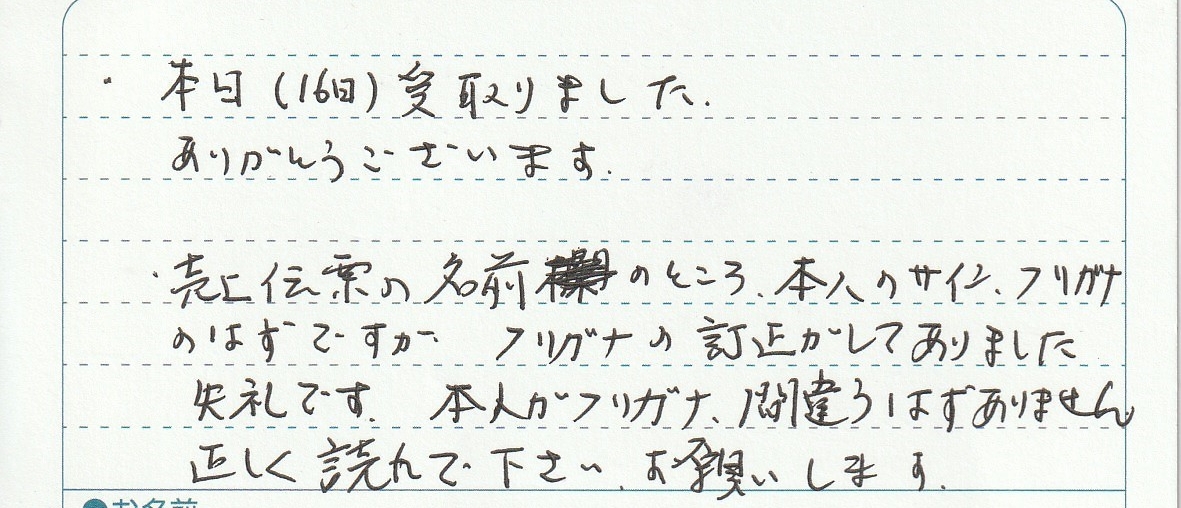 ・本日(16日)受取りました.
ありがとうございます.
・売上伝票の名前のところ、本人のサイン、フリガナ
のはずですが フリガナの訂正がしてありました
失礼です. 本人がフリガナ、間違うはずありません
正しく読んで下さい、お願いします.
●お名前